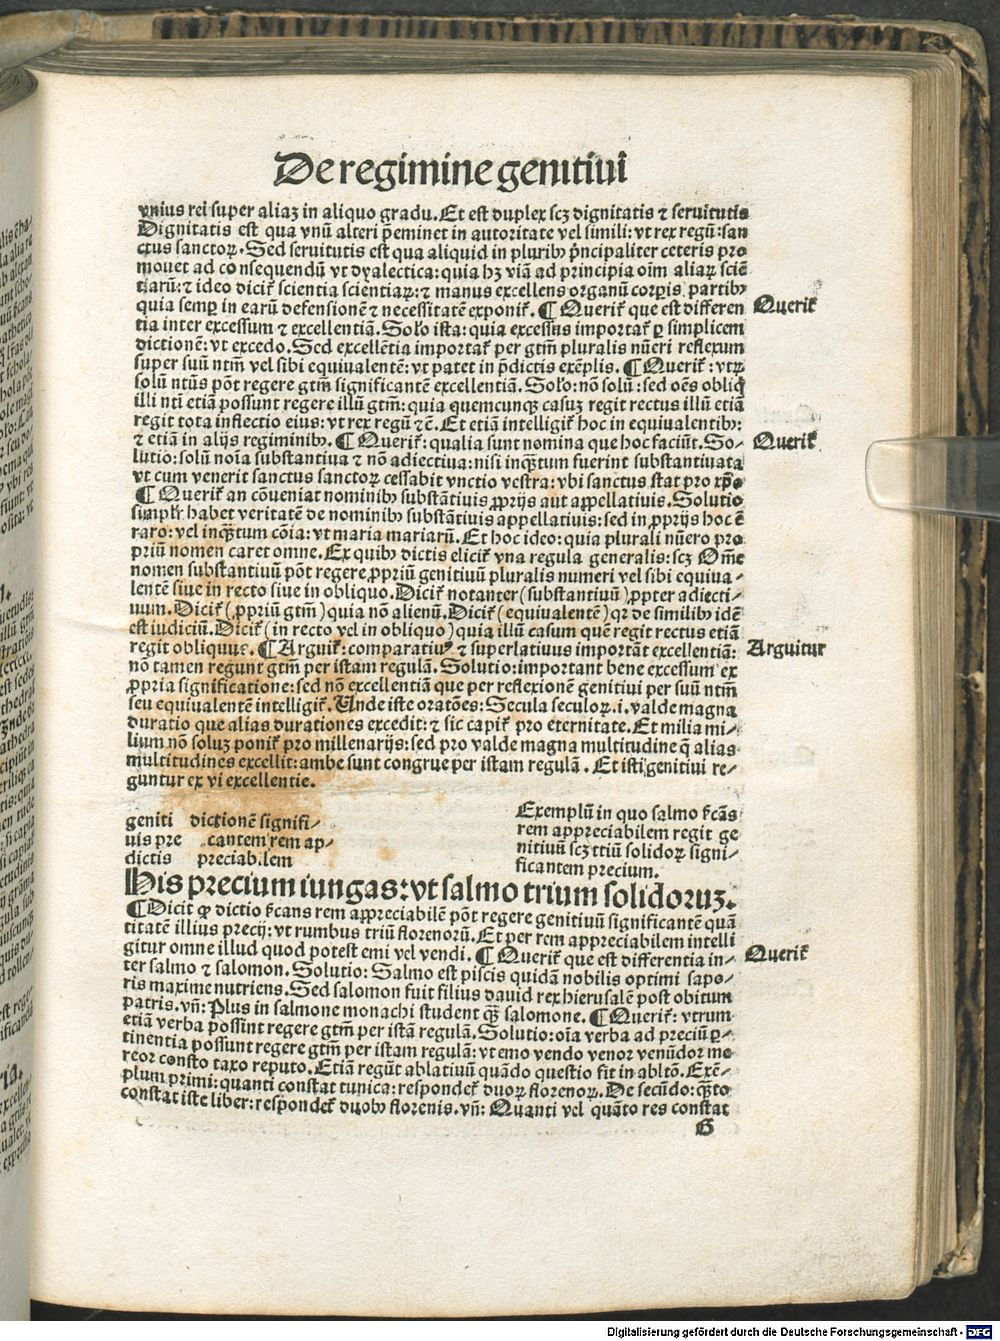 De regimine genitiui
vnius rei super aliaʒ in aliquo gradu. Et est duplex scʒ dignitatis ⁊ seruitutis
Dignitatis est qua vnū alteri p̄eminet in autoritate vel simili: vt rex regū: san
ctus sanctoꝝ. Sed seruitutis est qua aliquid in pluribꝰ p̄ncipaliter ceteris pro
mouet ad consequendū vt dyalectica: quia hʒ viā ad principia oīm aliaꝝ sciē
tiarū: ⁊ ideo dicit̄ scientia scientiaꝝ: ⁊ manus excellens organū corꝑis partibꝰ
quia semꝑ in earū defensionē ⁊ necessitatē exponit̄. ¶ Querit̄ que est differen
Querit̄
tia inter excessum ⁊ excellentiā. Solo ista: quia excessus importat̄ ꝑ simplicem
dictionē: vt excedo. Sed excellētia importat̄ per gtm̄ pluralis nūeri reflexum
super suū ntm̄ vel sibi equiualentē: vt patet in p̄dictis exēplis. ¶ Querit̄: vtꝝ
solū ntūs pōt regere gtm̄ significantē excellentiā. Solo: nō solū: sed oēs obliq̄
illi nti etiā possunt regere illū gtm̄: quia quemcunqꝫ casuʒ regit rectus illū etiā
regit tota inflectio eius: vt rex regū ⁊c̄. Et etiā intelligit̄ hoc in equiualentibꝰ:
⁊ etiā in alijs regiminibꝰ. ¶ Querit̄: qualia sunt nomina que hoc faciūt. So-
Querit̄
lutio: solū noīa substantiua ⁊ nō adiectiua: nisi inqꝫtum fuerint substantiuata
vt cum venerit sanctus sanctoꝝ cessabit vnctio vestra: vbi sanctus stat pro xp̄o
¶ Querit̄ an cōueniat nominibꝰ substātiuis ꝓprijs aut appellatiuis. Solutio
simplr̄ habet veritatē de nominibꝰ substātiuis appellatiuis: sed in ꝓprijs hoc ē
raro: vel inqꝫtum cōia: vt maria mariarū. Et hoc ideo: quia plurali nūero pro
priū nomen caret omne. Ex quibꝰ dictis elicit̄ vna regula generalis: scʒ Om̄e
nomen substantiuū pōt regere ꝓpriū genitiuū pluralis numeri vel sibi equiua-
lentē siue in recto siue in obliquo. Dicit̄ notanter (substantiuū) ꝓpter adiecti-
uum. Dicit̄ (ꝓpriū gtm̄) quia nō alienū. Dicit̄ (equiualentē) qꝛ de similibꝰ idē
est iudiciū. Dicit̄ (in recto vel in obliquo) quia illū casum quē regit rectus etiā
regit obliquus. ¶ Arguit̄: comparatiuꝰ ⁊ superlatiuus importāt excellentiā:
Arguitur
nō tamen regunt gtm̄ per istam regulā. Solutio: important bene excessum ex
ꝓpria significatione: sed nō excellentiā que per reflexionē genitiui per suū ntm̄
seu equiualentē intelligit̄. Unde iste oratōes: Secula seculoꝝ .i. valde magna
duratio que alias durationes excedit: ⁊ sic capit̄ pro eternitate. Et milia mi-
lium nō soluʒ ponit̄ pro millenarijs: sed pro valde magna multitudine q̄ alias
multitudines excellit: ambe sunt congrue per istam regulā. Et isti genitiui re-
guntur ex vi excellentie.
geniti dictionē signifi-
uis pre cantem rem ap-
dictis preciabilem
Exemplū in quo salmo sc̄as
rem appreciabilem regit ge
nitiuū scʒ ttiū solidoꝝ signi-
ficantem precium.
His precium iungas: vt salmo trium solidoruʒ.
¶ Dicit ꝙ dictio sc̄ans rem appreciabilē pōt regere genitiuū significantē quā
titatē illius precij: vt rumbus triū florenorū. Et per rem appreciabilem intelli
gitur omne illud quod potest emi vel vendi. ¶ Querit̄ que est differentia in-
Querit̄
ter salmo ⁊ salomon. Solutio: Salmo est piscis quidā nobilis optimi sapo-
ris maxime nutriens. Sed salomon fuit filius dauid rex hierusalē post obitum
patris. vn̄: Plus in salmone monachi student qꝫ salomone. ¶ Querit̄: vtrum
etiā verba possint regere gtm̄ per istā regulā. Solutio: oīa verba ad preciū ꝑ-
tinentia possunt regere gtm̄ per istam regulā: vt emo vendo venor venūdor me
reor consto taxo reputo. Etiā regūt ablatiuū quādo questio fit in abltō. Exē-
plum primi: quanti constat tunica: respondet̄ duoꝝ florenoꝝ. De secūdo: qꝫto
constat iste liber: respondet̄ duobꝰ florenis. vn̄: Quanti vel quāto res constat
G
Digitalisierung gefördert durch die Deutsche Forschungsgemeinschaft - DFG